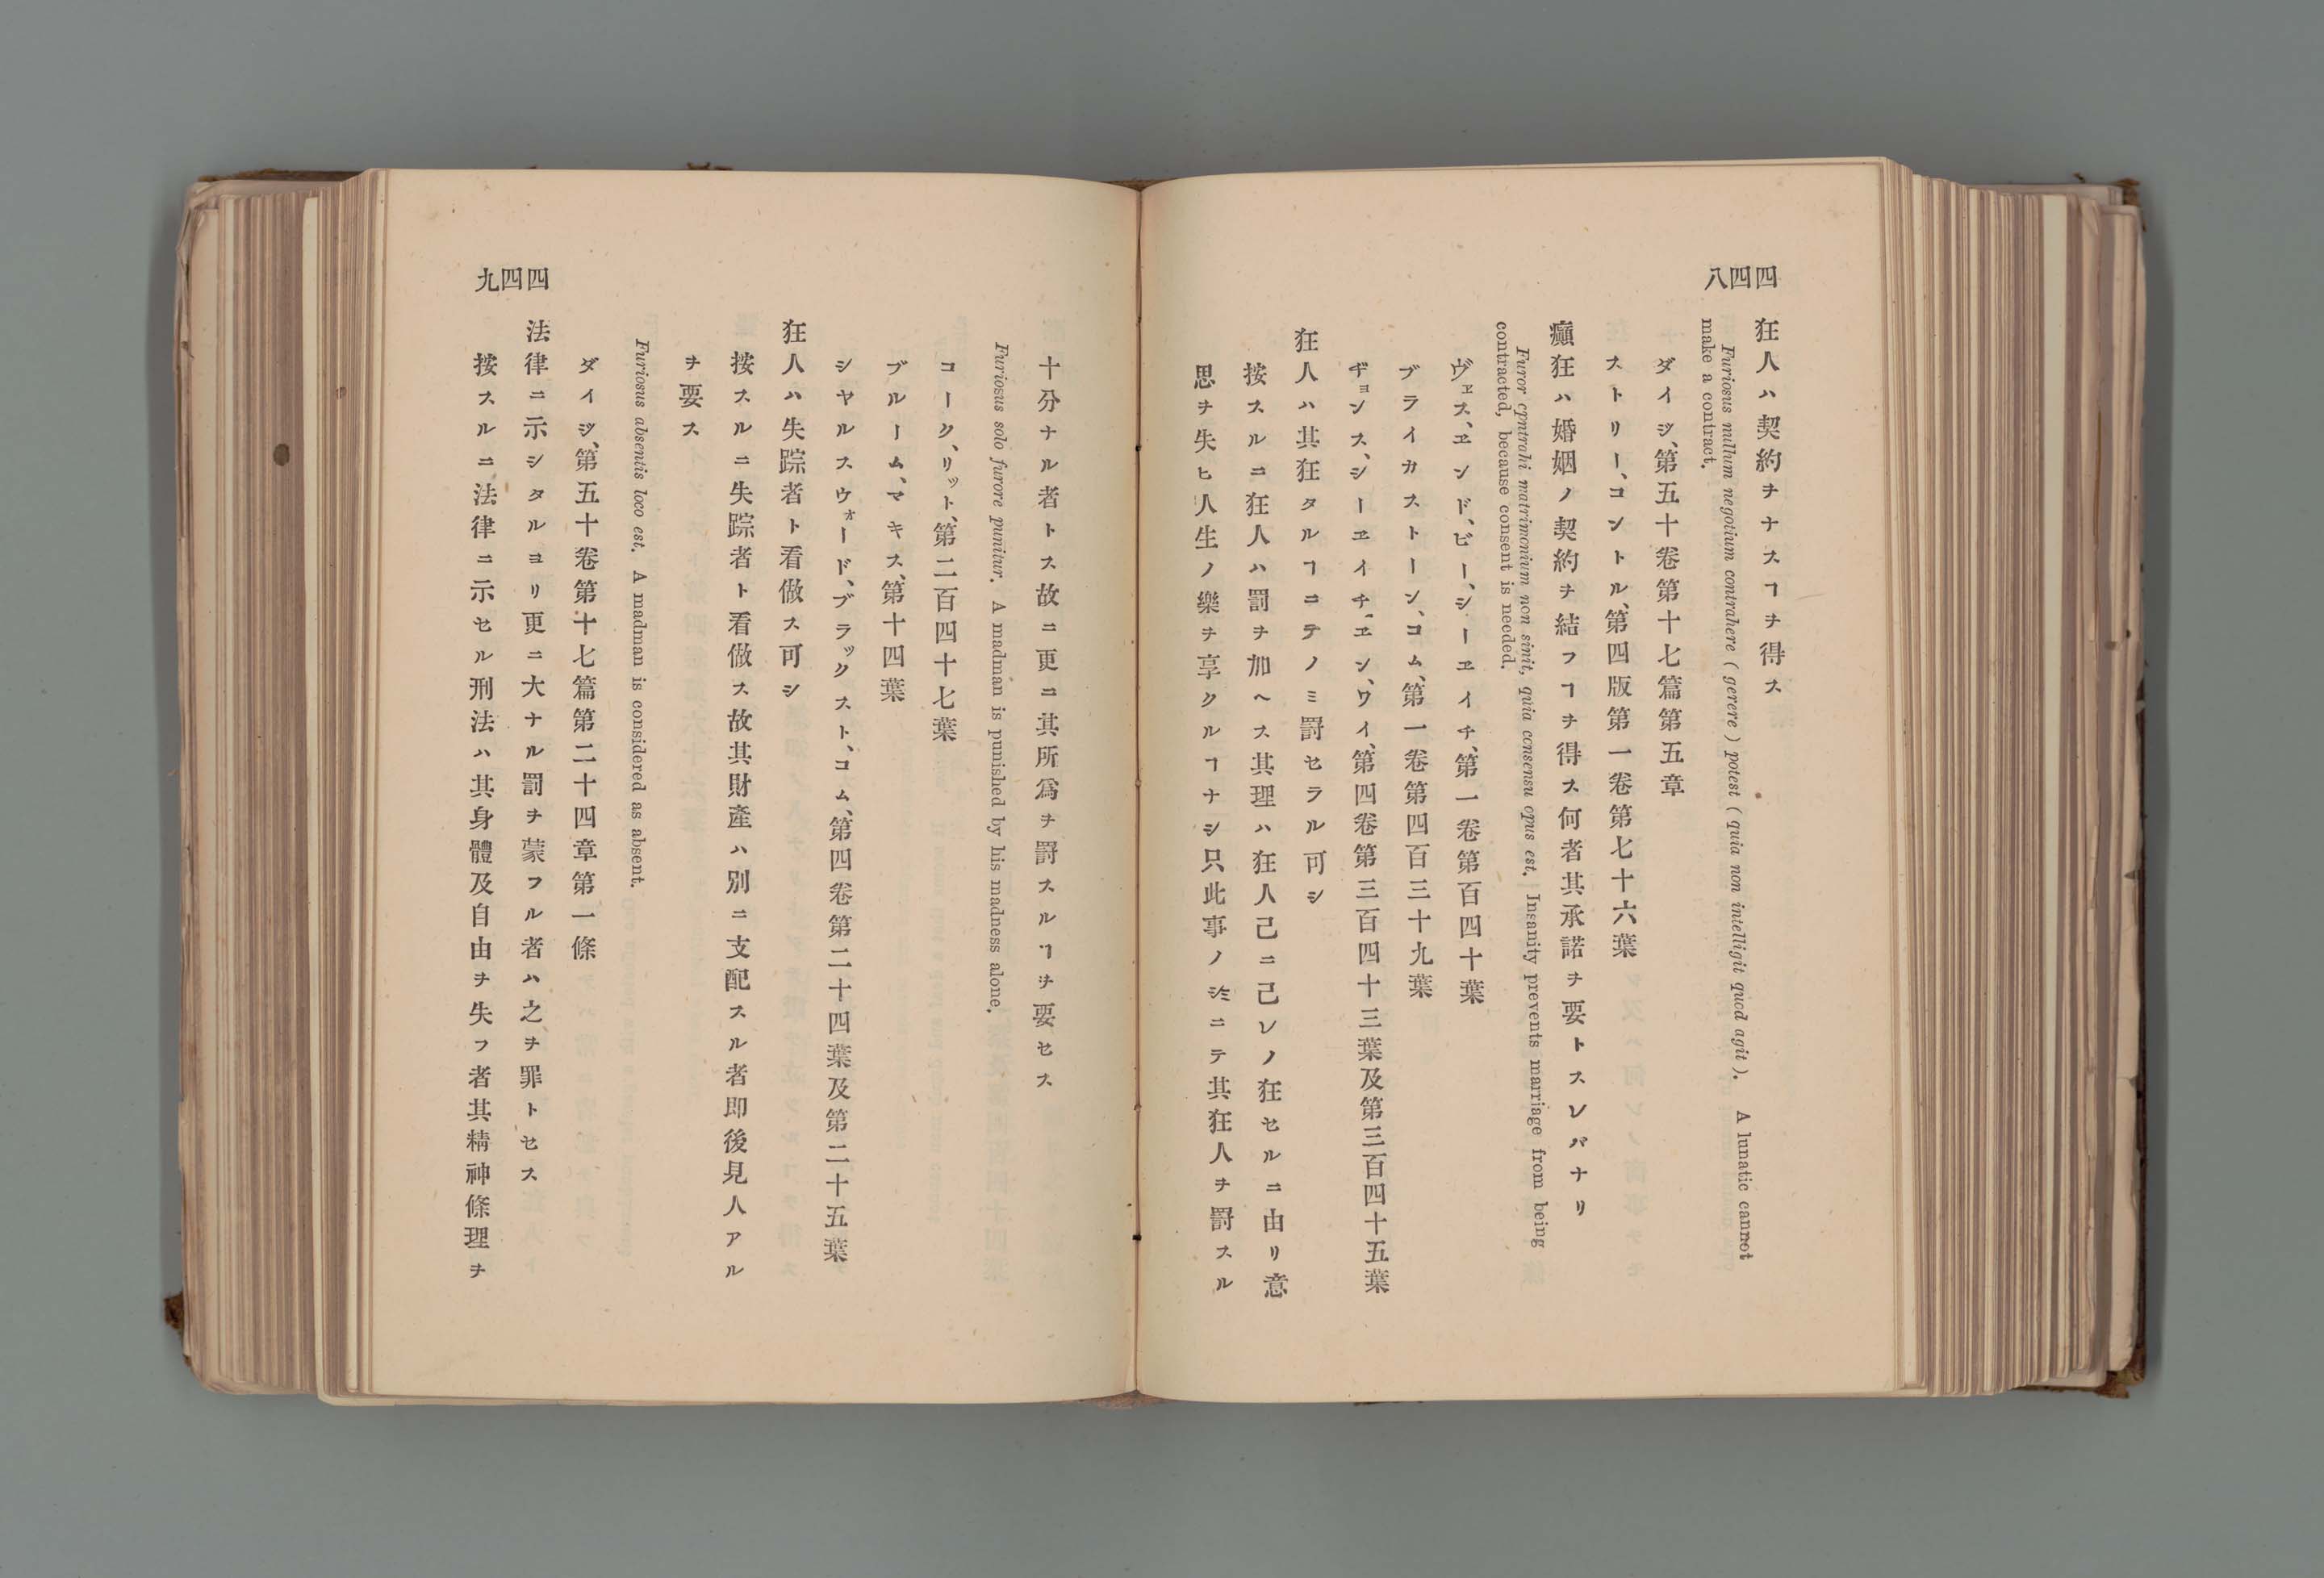 四四八
狂人ハ契約ヲナスヿヲ得ス
Furiosus nullum negotium contrahere ( gerere ) potest ( quia non intelligit quod agit ). A lunatic cannot
make a contract.
ダイジ、第五十卷第十七篇第五章
ストリー、コントル、第四版第一卷第七十六葉
癲狂ハ婚姻ノ契約ヲ結フヿヲ得ス何者其承諾ヲ要トスレバナリ
Furor cpntrahi matrimonium non sinit, quia consensu opus est. Insanity prevents marriage from being
contracted, because consent is needed.
ヴェス、ヱンド、ビー、シーヱイチ、第一卷第百四十葉
ブライカストーン、コム、第一卷第四百三十九葉
ヂョンス、シーヱイチ、ヱン、ワイ、第四卷第三百四十三葉及第三百四十五葉
狂人ハ其狂タルヿニテノミ罰セラル可シ
按スルニ狂人ハ罰ヲ加ヘス其理ハ狂人己ニ己レノ狂セルニ由リ意
思ヲ失ヒ人生ノ樂ヲ享クルヿナシ只此事ノミニテ其狂人ヲ罰スル
十分ナル者トス故ニ更ニ其所爲ヲ罰スルヿヲ要セス
Furiosus solo furore punitur. A madman is punished by his madness alone.
コーク、リット、第二百四十七葉
ブルーム、マキス、第十四葉
シヤルスウォード、ブラックスト、コム、第四卷第二十四葉及第二十五葉
狂人ハ失踪者ト看做ス可シ
按スルニ失踪者ト看做ス故其財產ハ別ニ支配スル者即後見人アル
ヲ要ス
Furiosus absentis loco est. A madman is considered as absent.
ダイジ、第五十卷第十七篇第二十四章第一條
法律ニ示シタルヨリ更ニ大ナル罰ヲ蒙フル者ハ之ヲ罪トセス
按スルニ法律ニ示セル刑法ハ其身體及自由ヲ失フ者其精神條理ヲ
四四九